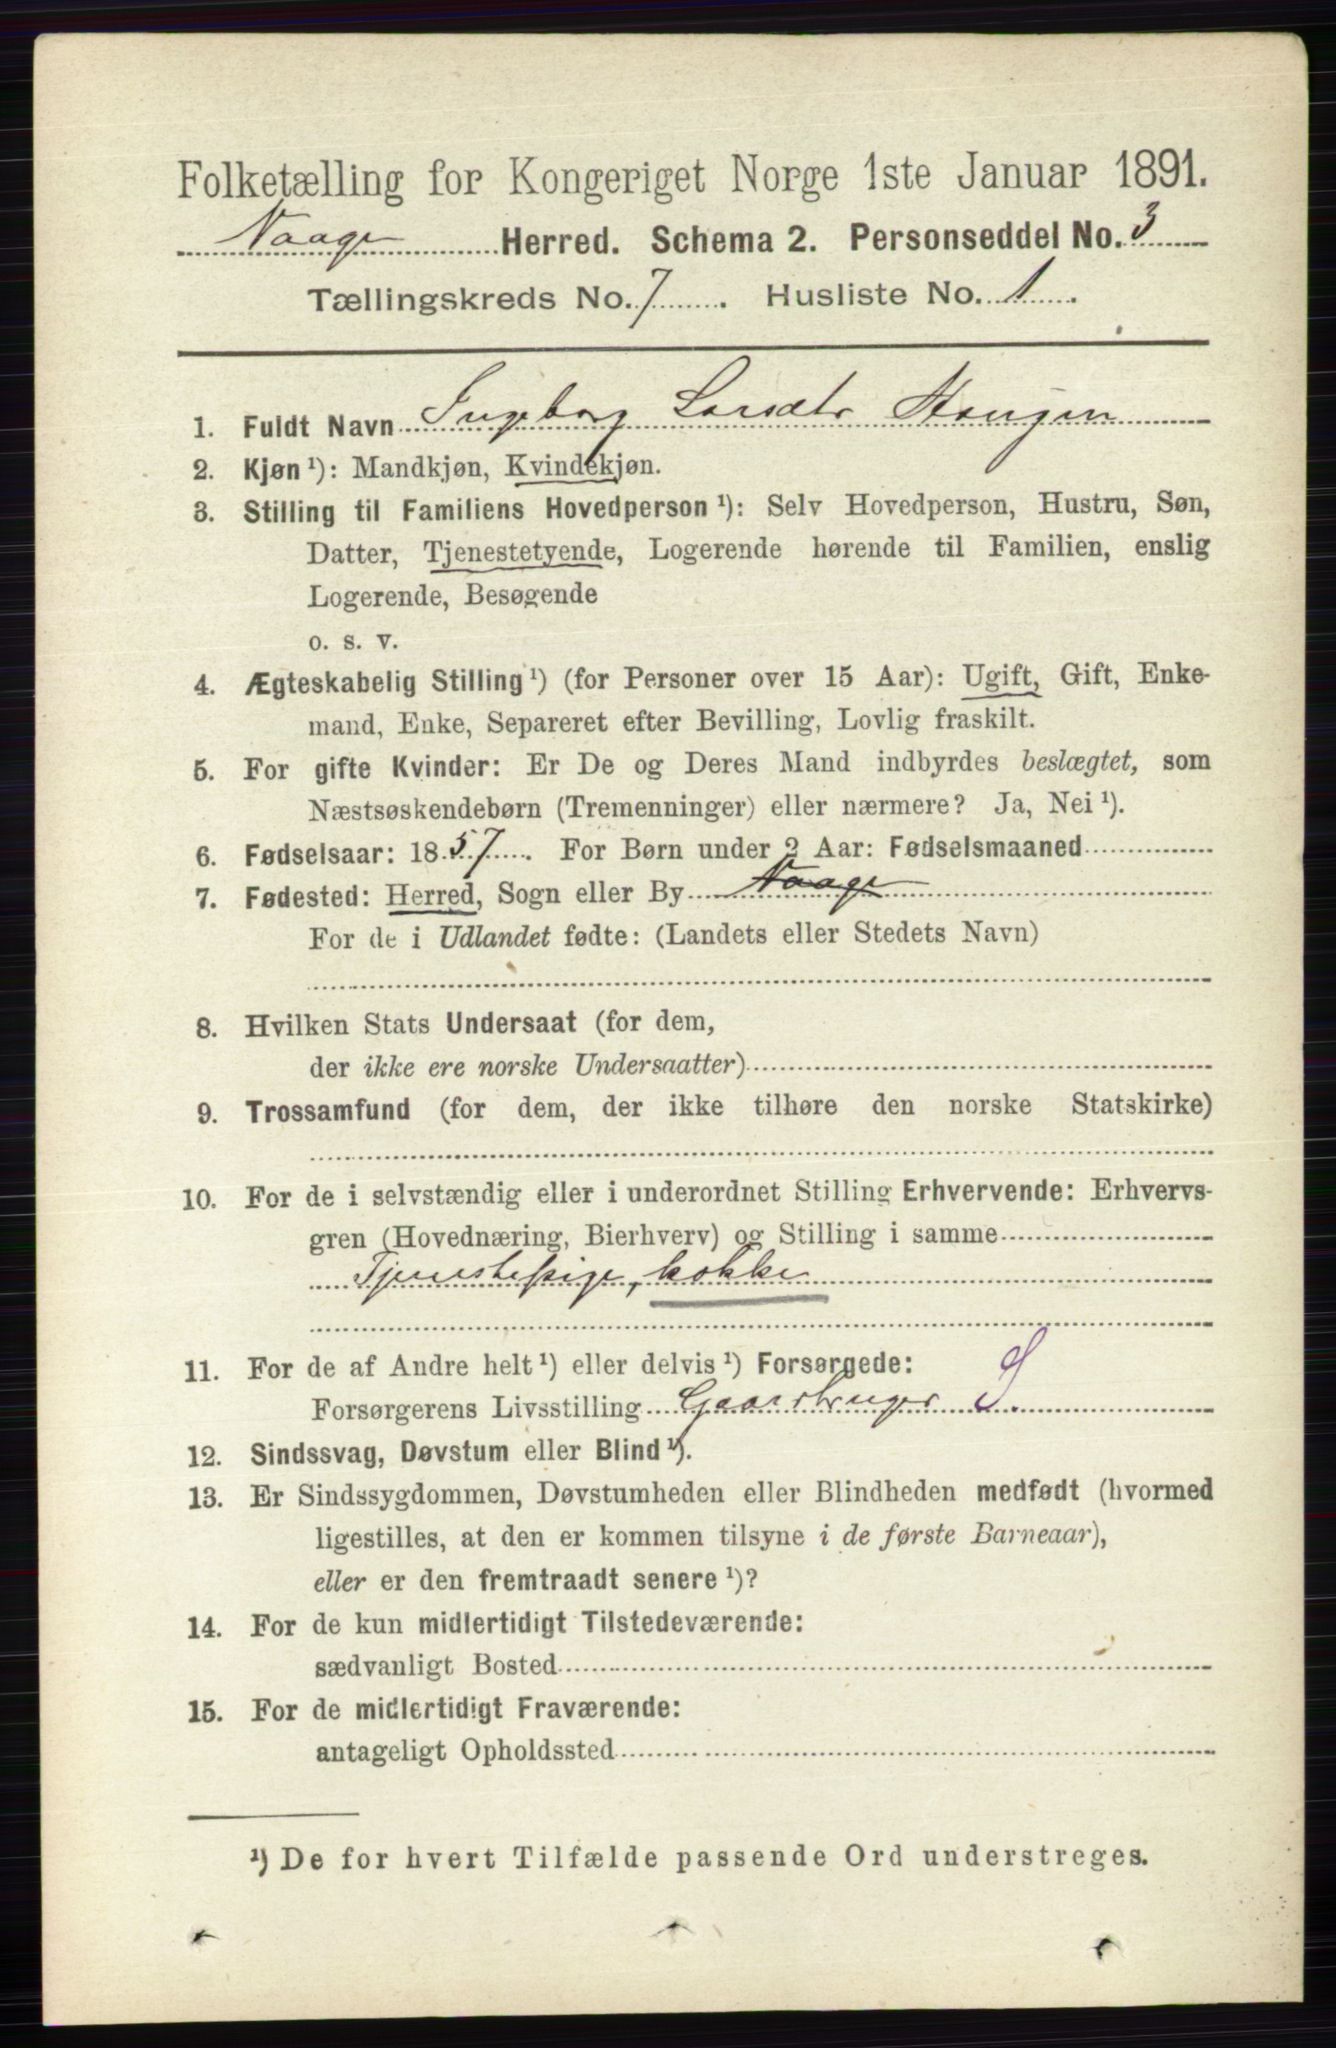 Folketælling for Kongeriget Norge 1ste Januar 1891.
Vaage Herred. Schema 2. Personseddel No. 3
Tællingskreds No. 7. Husliste No. 1.
1. Fuldt Navn Ingeborg Larsdtr Haugen
2. Kjøn ¹): Mandkjøn, Kvindekjøn.
3. Stilling til Familiens Hovedperson ¹): Selv Hovedperson, Hustru, Søn,
Datter, Tjenestetyende, Logerende hørende til Familien, enslig
Logerende, Besøgende
o. s. v.
4. Ægteskabelig Stilling ¹) (for Personer over 15 Aar): Ugift, Gift, Enke-
mand, Enke, Separeret efter Bevilling, Lovlig fraskilt.
5. For gifte Kvinder: Er De og Deres Mand indbyrdes beslægtet, som
Næstsøskendebørn (Tremenninger) eller nærmere? Ja, Nei ¹).
6. Fødselsaar: 1857. For Børn under 2 Aar: Fødselsmaaned
7. Fødested: Herred, Sogn eller By Vaage
For de i Udlandet fødte: (Landets eller Stedets Navn)
8. Hvilken Stats Undersaat (for dem,
der ikke ere norske Undersaatter)
9. Trossamfund (for dem, der ikke tilhøre den norske Statskirke)
10. For de i selvstændig eller i underordnet Stilling Erhvervende: Erhvervs-
gren (Hovednæring, Bierhverv) og Stilling i samme
Tjenestepige, kokke
11. For de af Andre helt ¹) eller delvis ¹) Forsørgede:
Forsørgerens Livsstilling Gaardbruger S.
12. Sindssvag, Døvstum eller Blind ¹).
13. Er Sindssygdommen, Døvstumheden eller Blindheden medfødt (hvormed
ligestilles, at den er kommen tilsyne i de første Barneaar),
eller er den fremtraadt senere ¹)?
14. For de kun midlertidigt Tilstedeværende:
sædvanligt Bosted
15. For de midlertidigt Fraværende:
antageligt Opholdssted
¹) De for hvert Tilfælde passende Ord understreges.